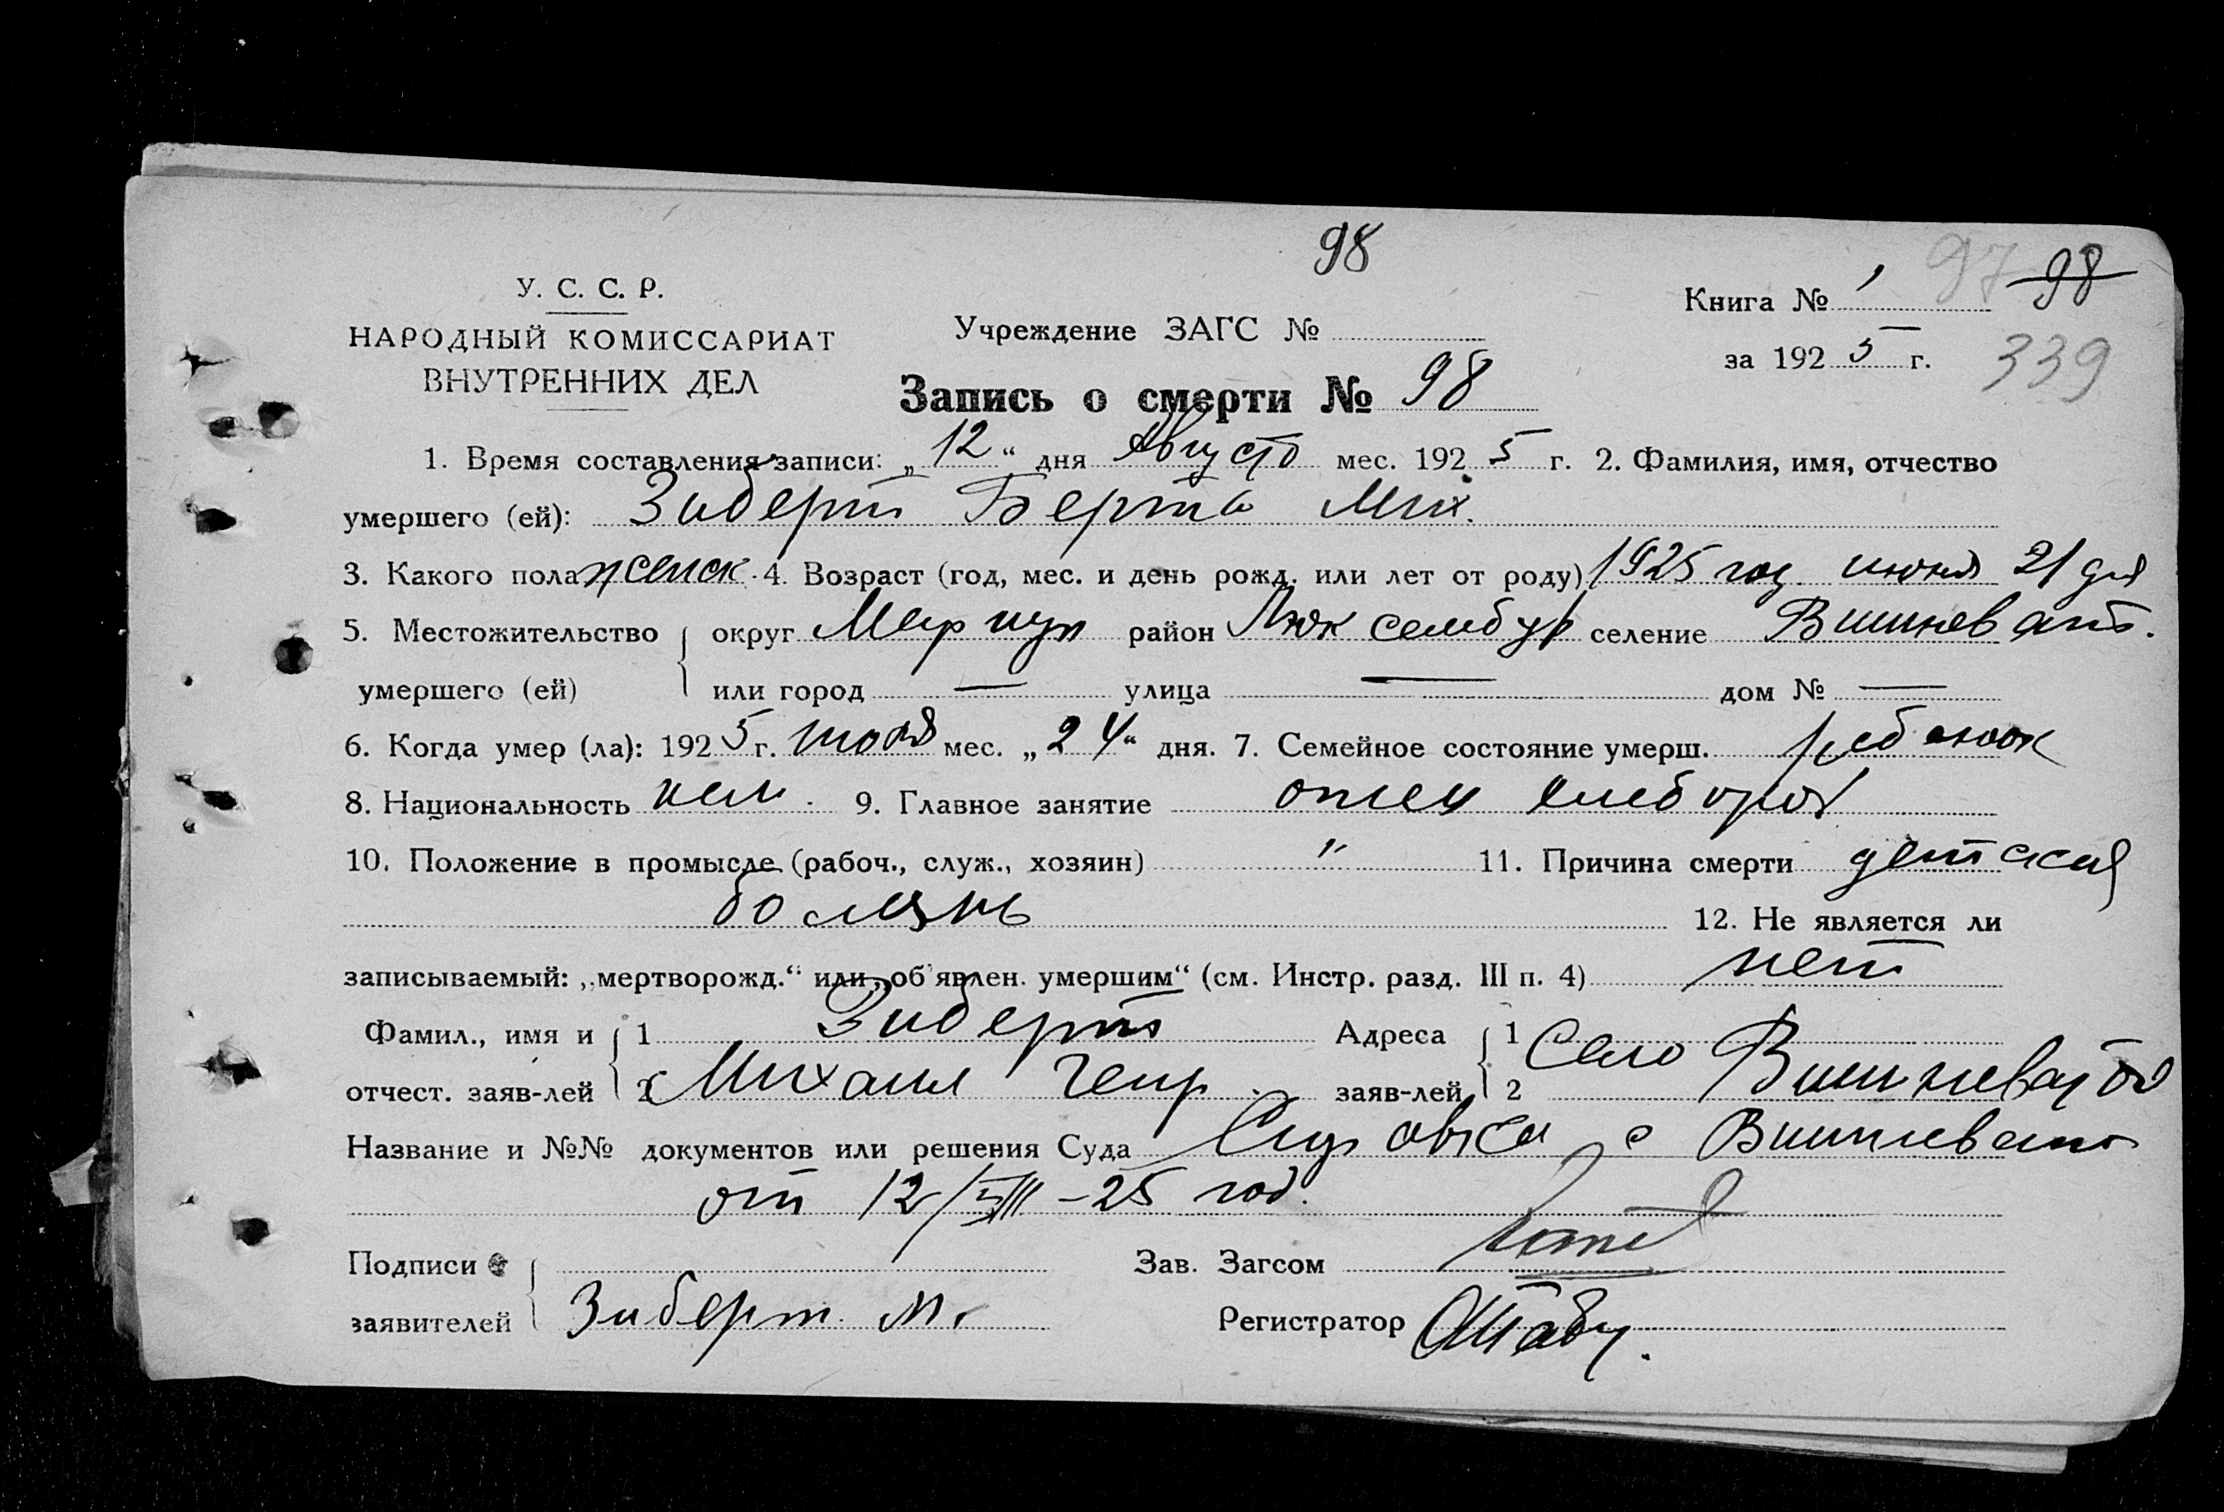 98
У. С. С. Р.
НАРОДНЫЙ КОМИССАРИАТ
ВНУТРЕННИХ ДЕЛ
Учреждение ЗАГС №
Книга № 1 97 98
за 1925 г. 339
Запись о смерти № 98
1. Время составления записи: „12“ дня Августа мес. 1925 г. 2. Фамилия, имя, отчество
умершего (ей): Зиберт Берта Мих.
3. Какого пола женск. 4. Возраст (год, мес. и день рожд. или лет от роду) 1925 год июня 21 дня
5. Местожительство умершего (ей) округ Мариуп район Люксембур селение Вишневат.
или город — улица — дом № —
6. Когда умер (ла): 1925 г. июля мес. „24“ дня. 7. Семейное состояние умерш. ребенок
8. Национальность нем. 9. Главное занятие отец хлебороб
10. Положение в промысле (рабоч., служ., хозяин) " 11. Причина смерти детская
болезнь 12. Не является ли
записываемый: „мертворожд.“ или „об'явлен. умершим“ (см. Инстр. разд. III п. 4) нет
Фамил., имя и отчест. заяв-лей 1 Зиберт Адреса заяв-лей 1 Село Вишневатое
2 Михаил Генр. 2
Название и №№ документов или решения Суда Справка с Вишневат
от 12/VIII-25 год.
Подписи заявителей Зиберт М. Зав. Загсом
Регистратор